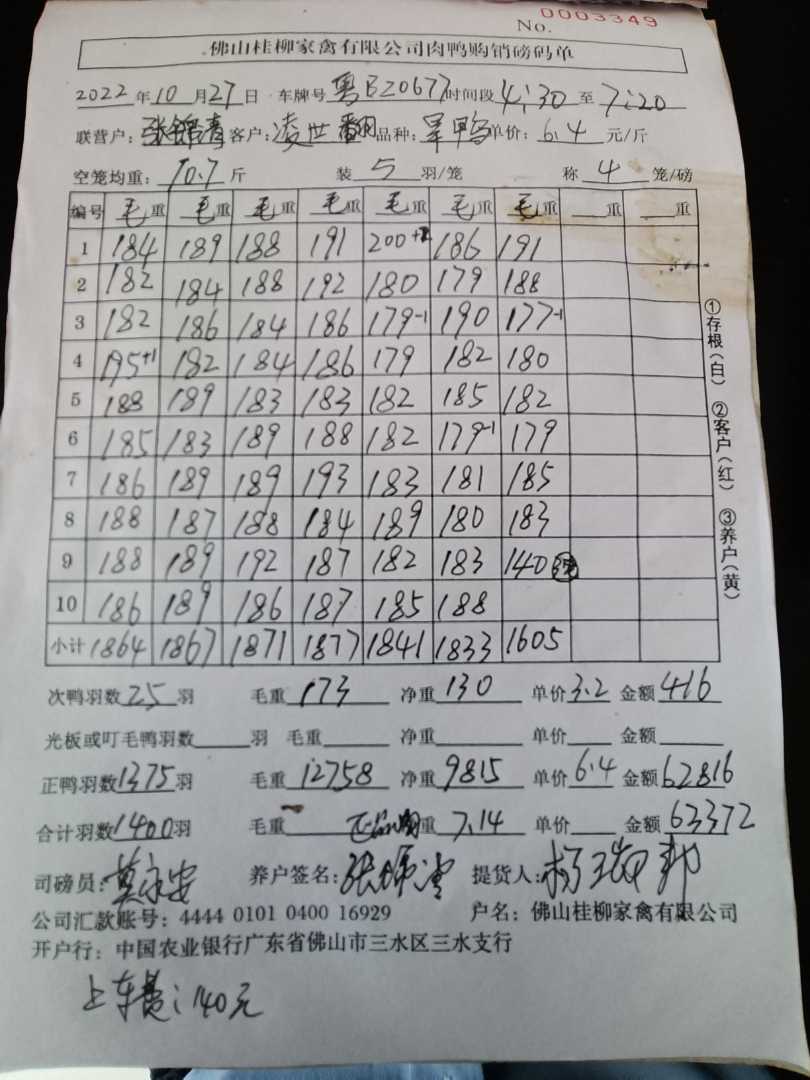 No. 0003349
佛山桂柳家禽有限公司肉鸭购销磅码单
2022年10月27日 车牌号粤BZ0677时间段4:30至7:20
联营户:张锦青客户:凌世翻品种:单价:6.4元/斤
空笼均重:10.7斤 装5羽/笼 称4笼/磅
编号 毛重 毛重 毛重 毛重 毛重 毛重 毛重 重 重
1 184 189 188 191 200 186 191
2 182 184 188 192 180 179 188
3 182 186 184 186 179-1 190 177-1
4 195+1 182 184 186 179 182 180
5 188 189 183 183 182 185 182
6 185 183 189 188 182 179-1 179
7 186 189 189 193 183 181 185
8 188 187 188 184 189 180 183
9 188 189 192 187 182 183 140
10 186 189 186 187 185 188
小计 1864 1867 1871 1877 1841 1833 1605
次鸭羽数25羽 毛重173 净重130 单价3.2 金额416
光板或叮毛鸭羽数 羽 毛重 净重 单价 金额
正鸭羽数1375羽 毛重12758 净重9815 单价6.4 金额62816
合计羽数1400羽 毛重 重7.14 单价 金额63372
司磅员:莫永安 养户签名:张 提货人:杨 邦
公司汇款账号:4444 0101 0400 16929 户名:佛山桂柳家禽有限公司
开户行:中国农业银行广东省佛山市三水区三水支行
上车费:140元
①存根(白) ②客户(红) ③养户(黄)